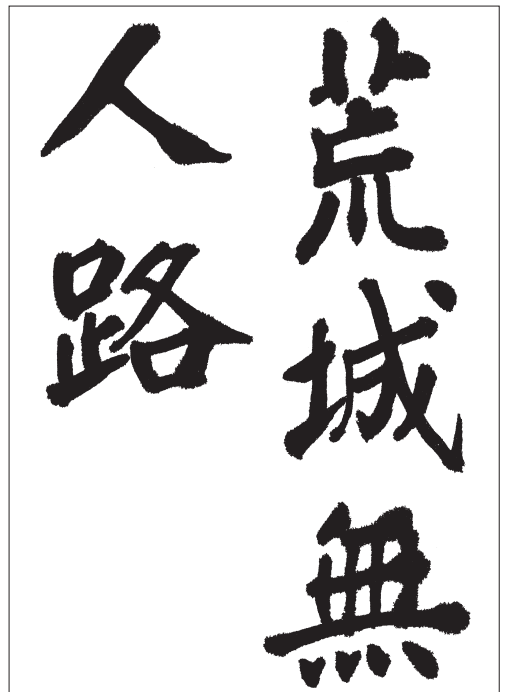 荒城無
人路